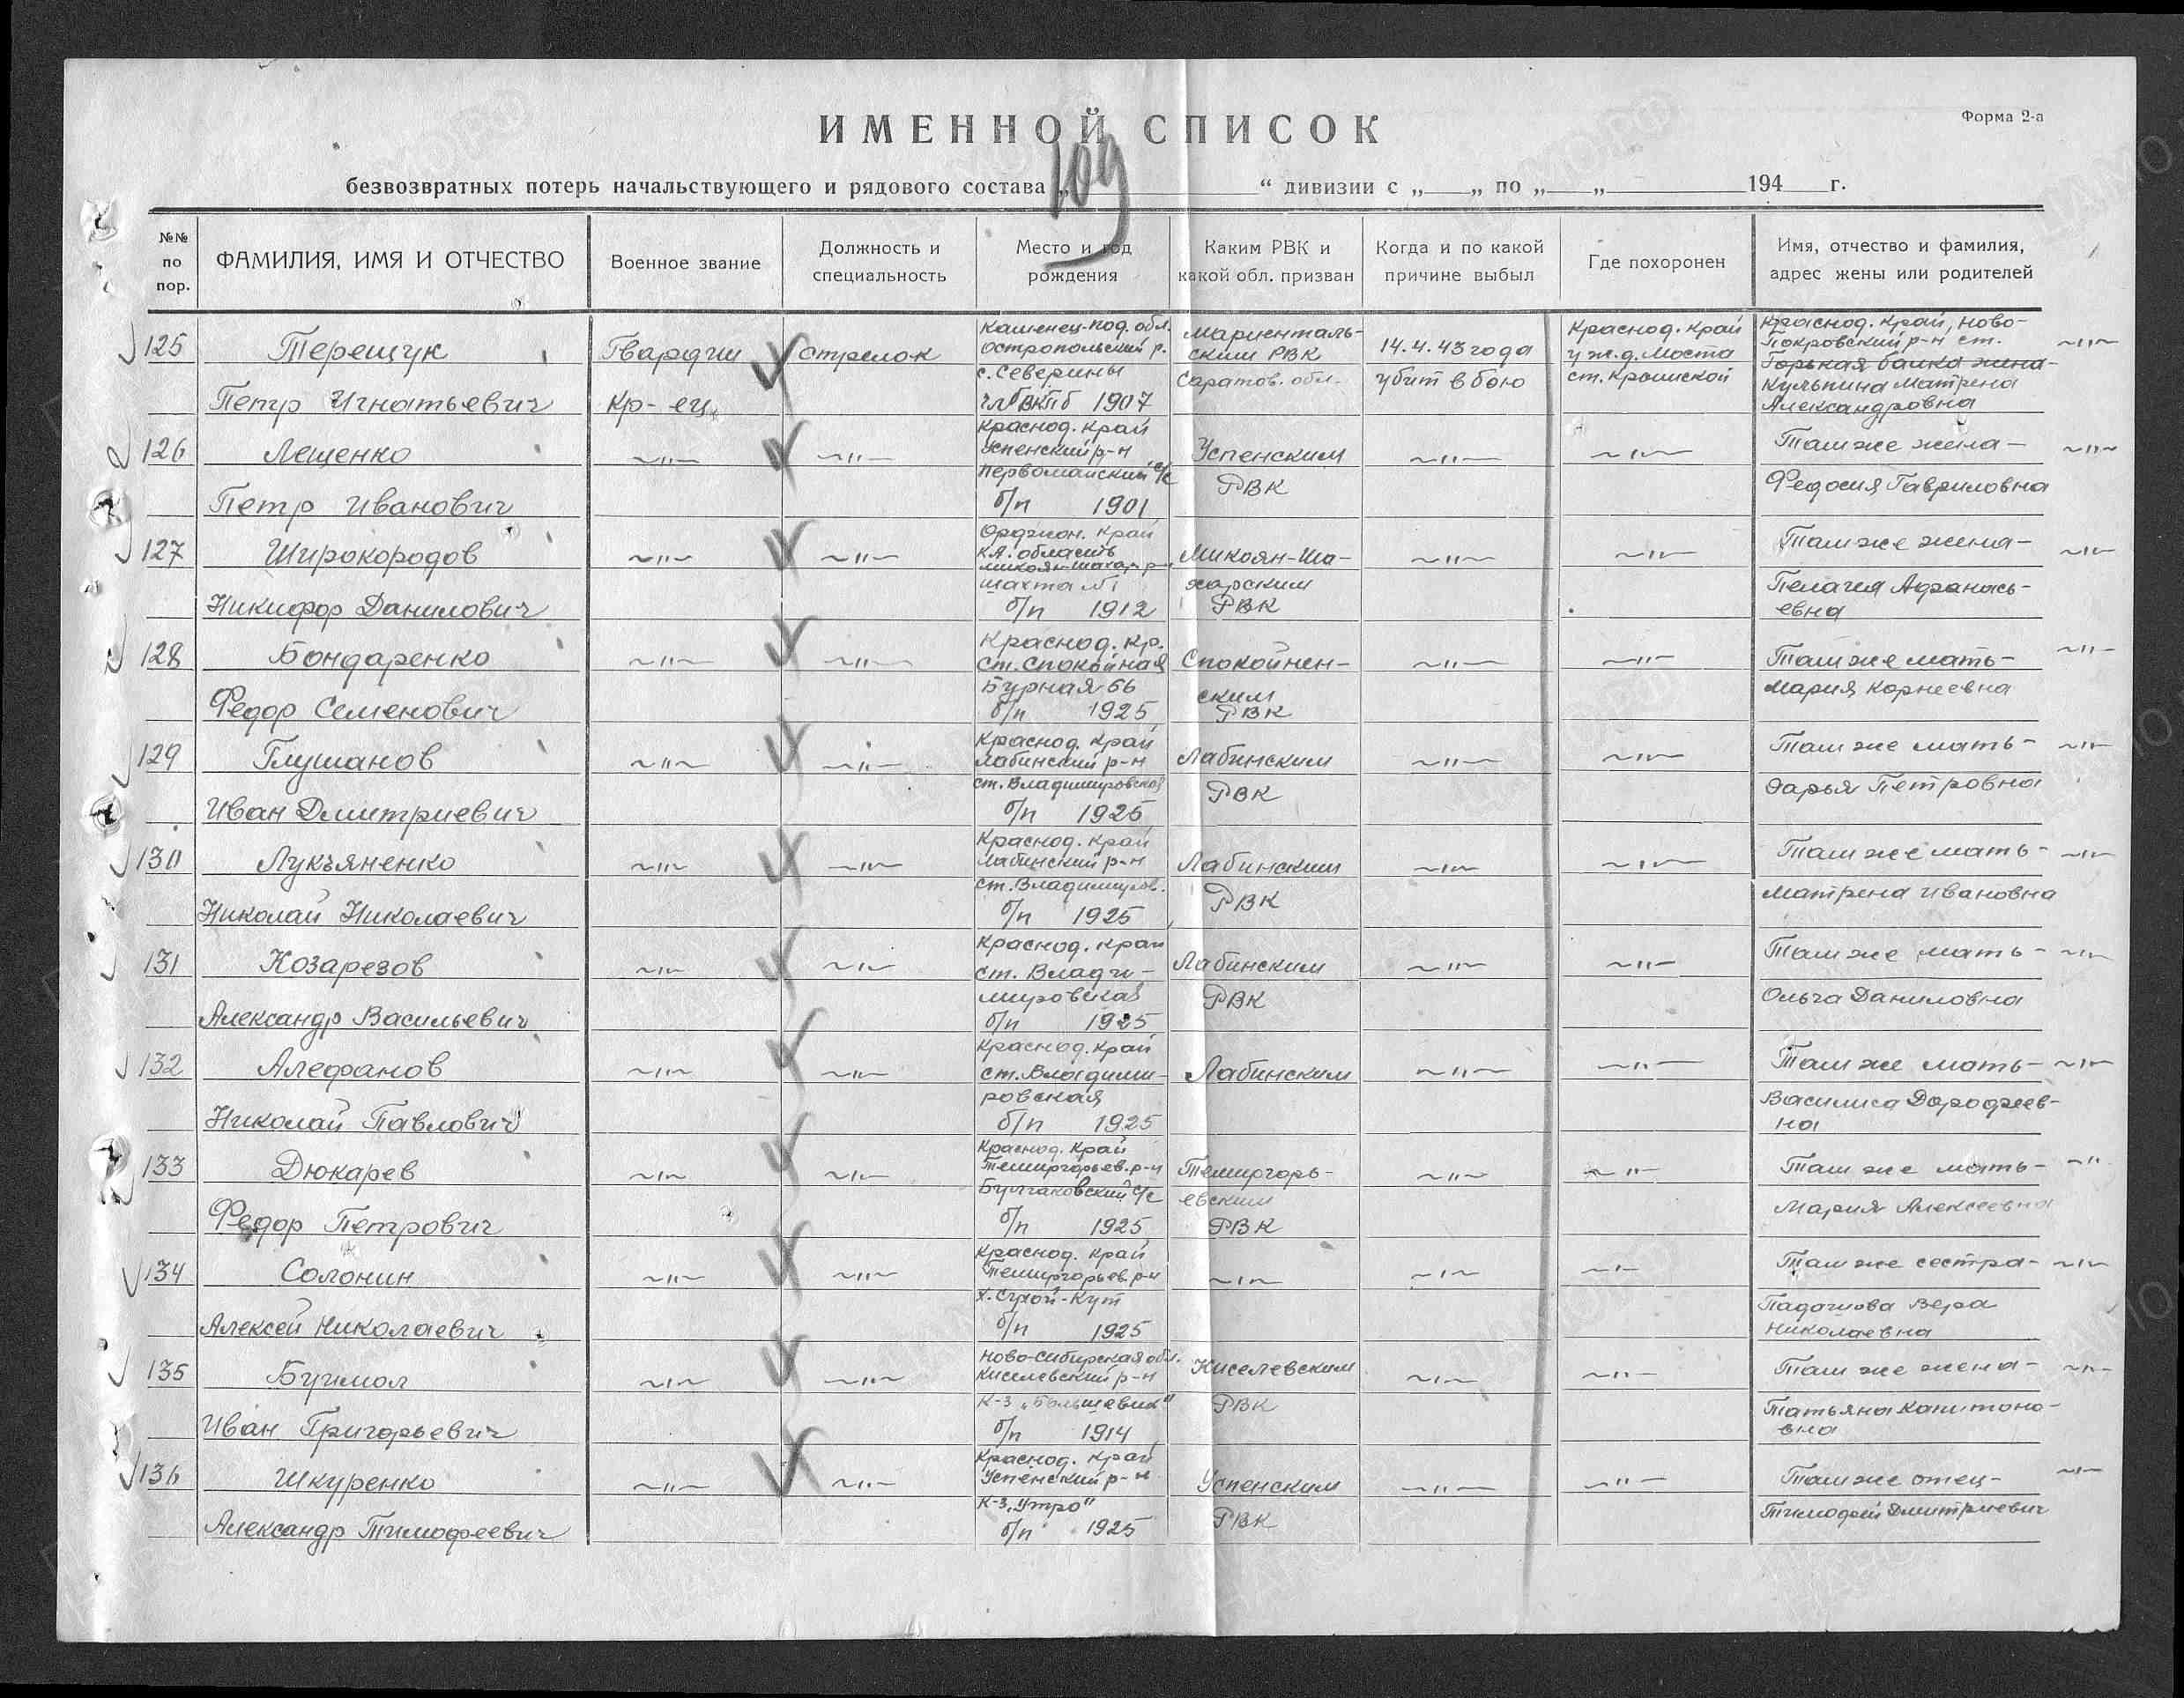 Форма 2-а
ИМЕННОЙ СПИСОК
109
безвозвратных потерь начальствующего и рядового состава „ “ дивизии с „ „ по „ „ 194 г.
№№ по пор.
ФАМИЛИЯ, ИМЯ И ОТЧЕСТВО
Военное звание
Должность и специальность
Место и год рождения
Каким РВК и какой обл. призван
Когда и по какой причине выбыл
Где похоронен
Имя, отчество и фамилия, адрес жены или родителей
125
Терещук
Петр Игнатьевич
Гвардии
кр-ец
стрелок
Каменец-под. обл.
Остропольский р.
с. Северины
чл ВКПб 1907
Мариенталь-
ским РВК
Саратов. обл.
14.4.43 года
убит в бою
Краснод. край
у ж.д. моста
ст. Крымской
Краснод. край, Ново-
Покровский р-н ст.
Горькая балка жена-
Кульпина Матрена
Александровна
~"~
126
Лещенко
Петр Иванович
~"~
~"~
Краснод. край
Успенский р-н
Первомайский с/с
б/п 1901
Успенским
РВК
~"~
~"~
Там же жена-
Федосия Гавриловна
~"~
127
Широкородов
Никифор Данилович
~"~
~"~
Орджон. край
К.А. область
Микоян-Шахар р-н
шахта №1
б/п 1912
Микоян-Ша-
харским
РВК
~"~
~"~
Там же жена-
Пелагея Афанась-
евна
~"~
128
Бондаренко
Федор Семенович
~"~
~"~
Краснод. кр.
ст. Спокойная
Бурная 66
б/п 1925
Спокойнен-
ским
РВК
~"~
~"~
Там же мать-
Мария Корнеевна
~"~
129
Глушанов
Иван Дмитриевич
~"~
~"~
Краснод. край
Лабинский р-н
ст. Владимировская
б/п 1925
Лабинским
РВК
~"~
~"~
Там же мать-
Дарья Петровна
~"~
130
Лукьяненко
Николай Николаевич
~"~
~"~
Краснод. край
Лабинский р-н
ст. Владимиров.
б/п 1925
Лабинским
РВК
~"~
~"~
Там же мать-
Матрена Ивановна
~"~
131
Козарезов
Александр Васильевич
~"~
~"~
Краснод. край
ст. Влади-
мировская
б/п 1925
Лабинским
РВК
~"~
~"~
Там же мать-
Ольга Даниловна
~"~
132
Алефанов
Николай Павлович
~"~
~"~
Краснод. край
ст. Владими-
ровская
б/п 1925
Лабинским
~"~
~"~
Там же мать-
Василиса Дорофеев-
на
~"~
133
Дюкарев
Федор Петрович
~"~
~"~
Краснод. край
Темиргоев. р-н
Булгаковский с/с
б/п 1925
Темиргорь-
евским
РВК
~"~
~"~
Там же мать-
Мария Алексеевна
~"
134
Солонин
Алексей Николаевич
~"~
~"~
Краснод. край
Темиргорьев. р-н
х. Сухой-Кут
б/п 1925
~"~
~"~
~"~
Там же сестра-
Вера
Николаевна
~"~
135
Буймол
Иван Григорьевич
~"~
~"~
Ново-Сибирская обл.
Киселевский р-н
К-з „Большевик"
б/п 1914
Киселевским
РВК
~"~
~"~
Там же жена-
Татьяна Капитоно-
вна
~"~
136
Шкуренко
Александр Тимофеевич
~"~
~"~
Краснод. край
Успенский р-н
К-з „Утро"
б/п 1925
Успенским
РВК
~"~
~"~
Там же отец-
Тимофей Дмитриевич
~"~